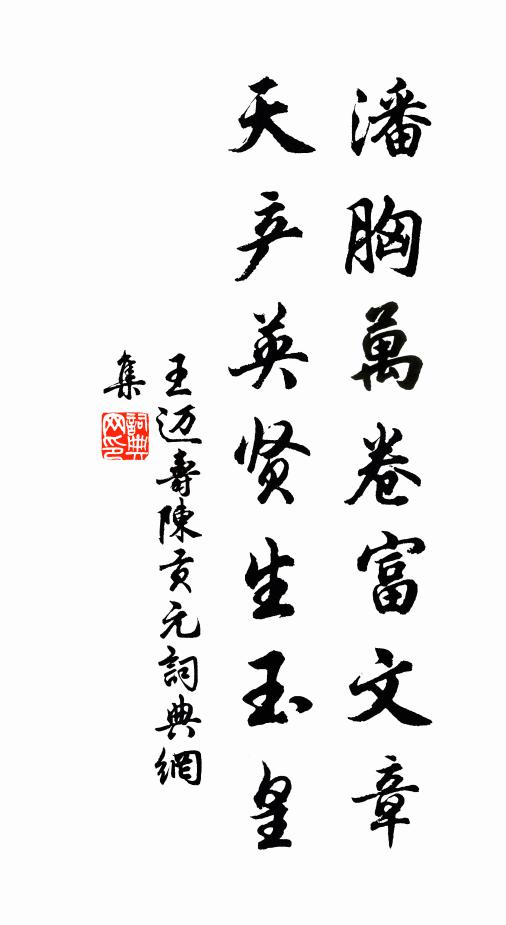 潘胸萬卷富文章
天产英贤生玉皇
王迈壽陳貢元詞典網
集
詞典网印